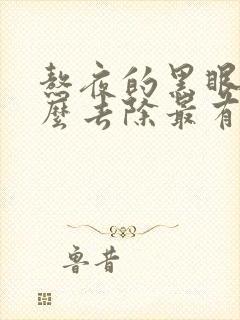 熬夜的黑眼
麼去除最有
鲁昔